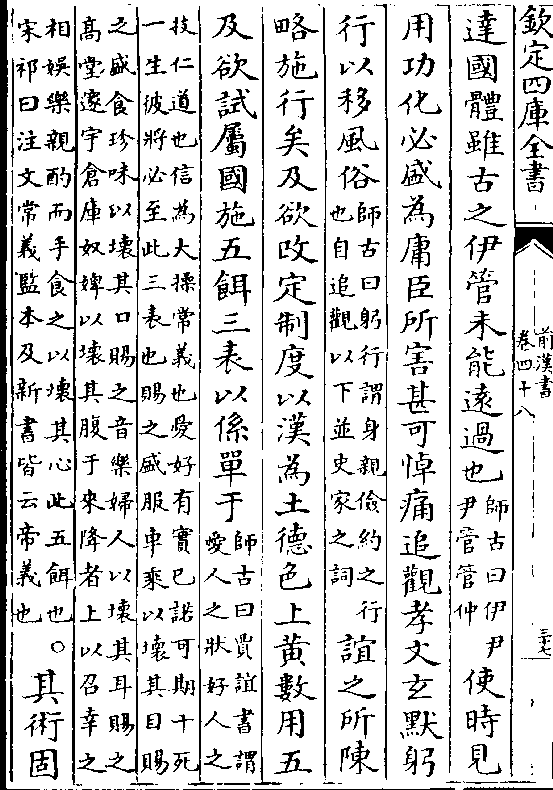 欽定四庫全書
前漢書
卷四十八
三七
達國體雖古之伊管未能遠過也師古曰伊伊尹管管仲使時見
用功化必盛為庸臣所害甚可悼痛追觀孝文玄默躬
行以移風俗師古曰躬行謂身親儉約之行也自追觀以下並史家之詞誼之所陳
略施行矣及欲改定制度以漢為土德色上黄數用五
及欲試屬國施五餌三表以係單于師古曰賈誼書謂愛人之狀好人之
技仁道也信為大操常義也愛好有實已諾可期十死
一生彼將必至此三表也賜之盛服車乘以壊其目賜
之盛食珍味以壊其口賜之音樂婦人以壊其耳賜之
髙堂邃宇倉庫奴婢以壊其腹于來降者上以召幸之
相娛樂親酌而手食之以壊其心此五餌也
宋祁曰注文常義監本及新書皆云帝義也。其術固